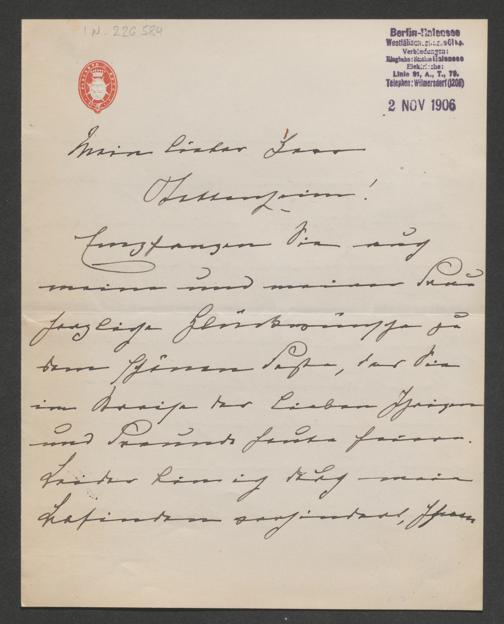 I N. 226.584
Berlin-Halensee
Verbindungen:
Ringbahn: Station Halensee
Elektrische:
Linie 91, A., T., 79.
Telephon: Wilmersdorf
2 NOV 1906
Mein lieber Herr
Stettenheim!
Empfangen Sie auch
meine und meiner Frau
herzliche Glückwünsche zu
dem schönen Feste, das Sie
im Kreise der lieben Ihrigen
und Freunde heute feiern.
Leider bin ich durch mein
Befinden verhindert, Ihnen